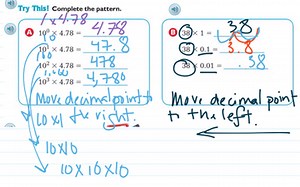 Try This! Complete the pattern.
1 x 4.78
A 10⁰ × 4.78 = 4.78
10
10¹ × 4.78 = 47.8
100
10² × 4.78 = 478
1,000
10³ × 4.78 = 4,780
Move decimal point
to the right.
10x1
10x10
10x10x10
B 38 × 1 = 38
38 × 0.1 = 3.8
38 × 0.01 = .38
Move decimal point
to the left.